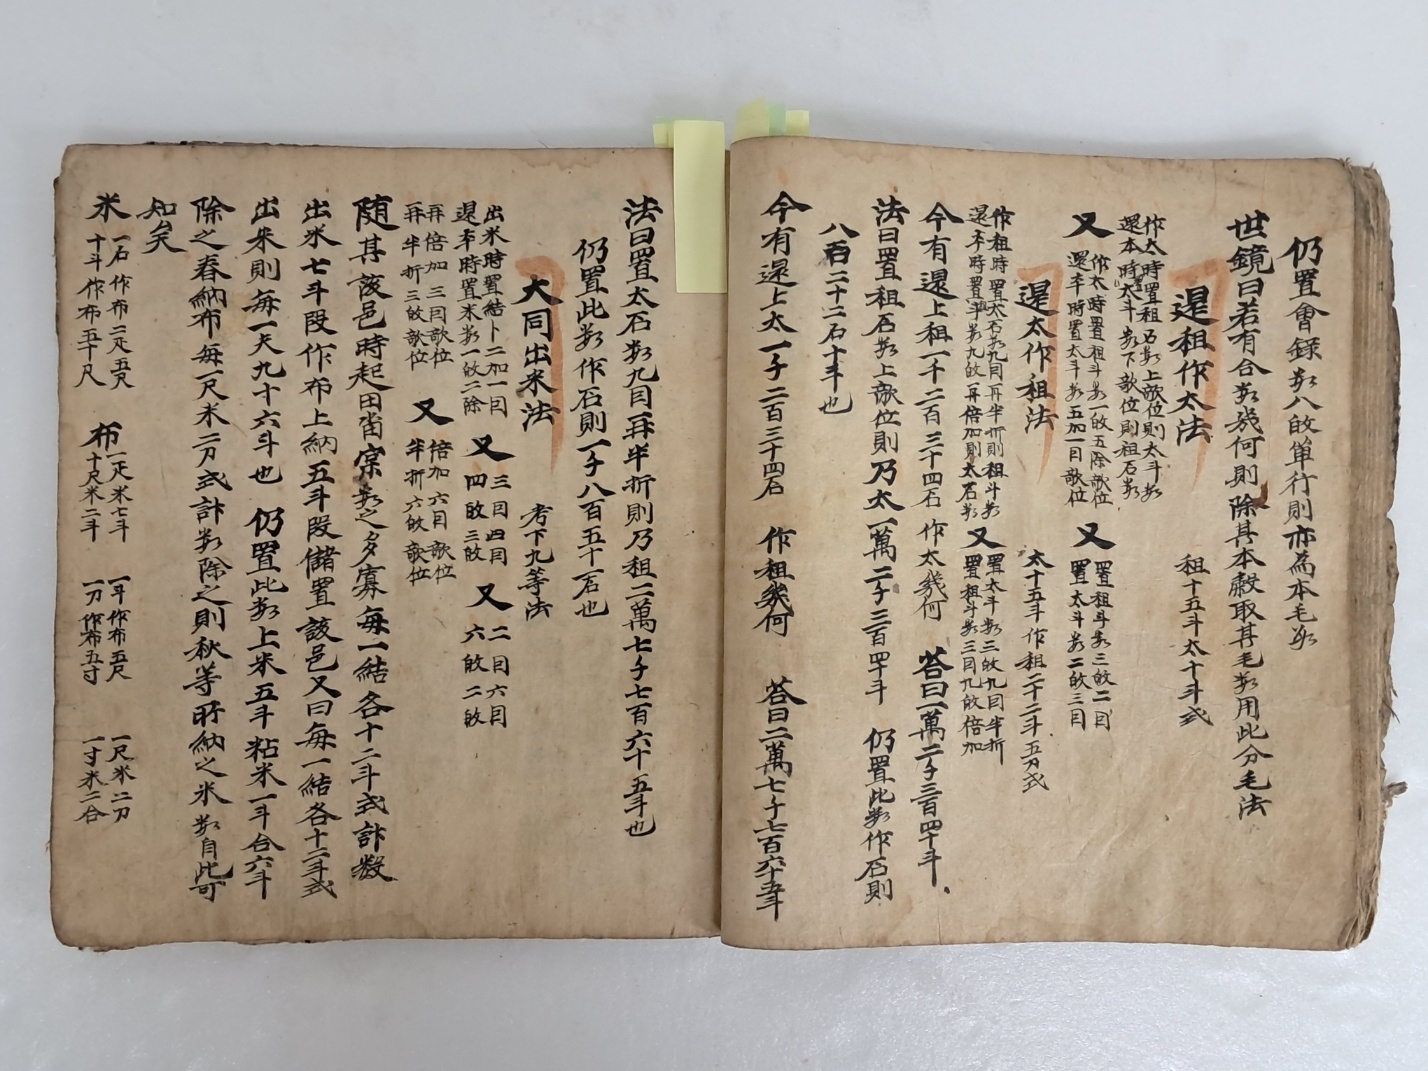 仍置會錄数八㪣單行則亦為本毛数
世鏡曰若有合数幾何則除其本觳取其毛数用此分毛法
還租作太法 租十五斗太十斗式
作太時置租石数上㪣位則太斗数
還本時太斗数下㪣位則租石数
又 作太時置租斗数一㪣五除㪣位
還本時置太斗数五加一目㪣位
又 置租斗数三㪣二目
置太斗数二㪣三目
還太作租法 太十五斗作租二十二斗五刀式
作租時置太石数九目再半折則租斗数
還本時置斗数九㪣再倍加則太石数
又 置太斗数三㪣九目半折
置租斗数三目九㪣倍加
今有還上租一千二百三十四石 作太幾何 答曰一萬二千三百四十斗
法曰置租石数上㪣位則乃太一萬二千三百四十斗 仍置此数作石則
八百二十二石十斗也
今有還上太一千二百三十四石 作租幾何 答曰二萬七千七百六十五斗
法曰置太石数九目再半折則乃租二萬七千七百六十五斗也
仍置此数作石則一千八百五十一石也
大同出米法 考下九等法
出米時置結卜二加一目
還本時置米数一㪣二除
又 三目四目
四㪣三㪣
又 二目六目
六㪣二㪣
再倍加三目㪣位
再半折三㪣㪣位
又 倍加六目㪣位
半折六㪣㪣位
随其該邑時起田畓宲数之多寡每一結各十二斗式計数
出米七斗段作布上納五斗段儲置該邑又曰每一結各十二斗式
出来則每一夫九十六斗也 仍置此数上米五斗粘米一斗合六斗
除之春納布每一尺米二刀式計数除之則秋等所納之米数自此可
知矣
米 一石作布二疋五尺
十斗作布五十尺
布 一疋米七斗
十尺米二斗
一斗作布五尺
一刀作布五寸
一尺米二刀
一寸米二合